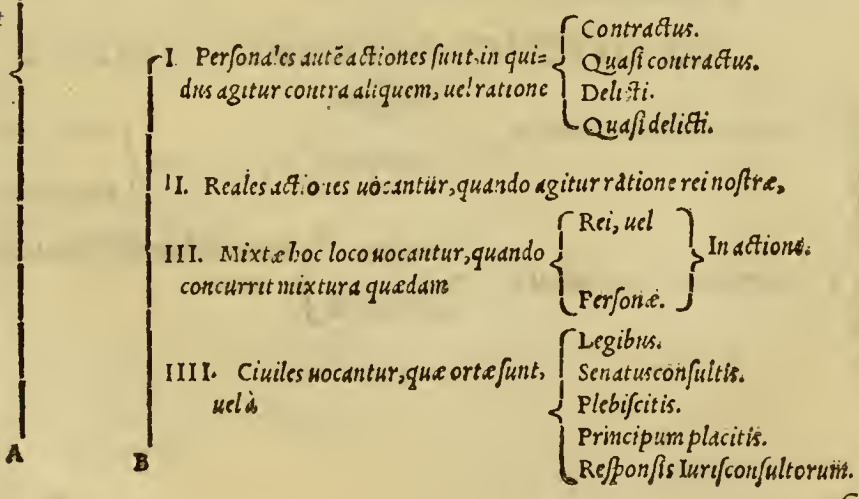 I. Perſonales autē actiones ſunt, in qui=
bus agitur contra aliquem, uel ratione
Contractus.
Quaſi contractus.
Delicti.
Quaſi delicti.
II. Reales actiones uocantur, quando agitur ratione rei noſtræ,
III. Mixtæ hoc loco uocantur, quando
concurrit mixtura quædam
Rei, uel
Perſonæ.
In actione.
IIII. Ciuiles uocantur, quæ ortæ ſunt,
uel à
Legibus.
Senatusconſultis.
Plebiſcitis.
Principum placitis.
Reſponſis Iuriſconſultorum.
A
B